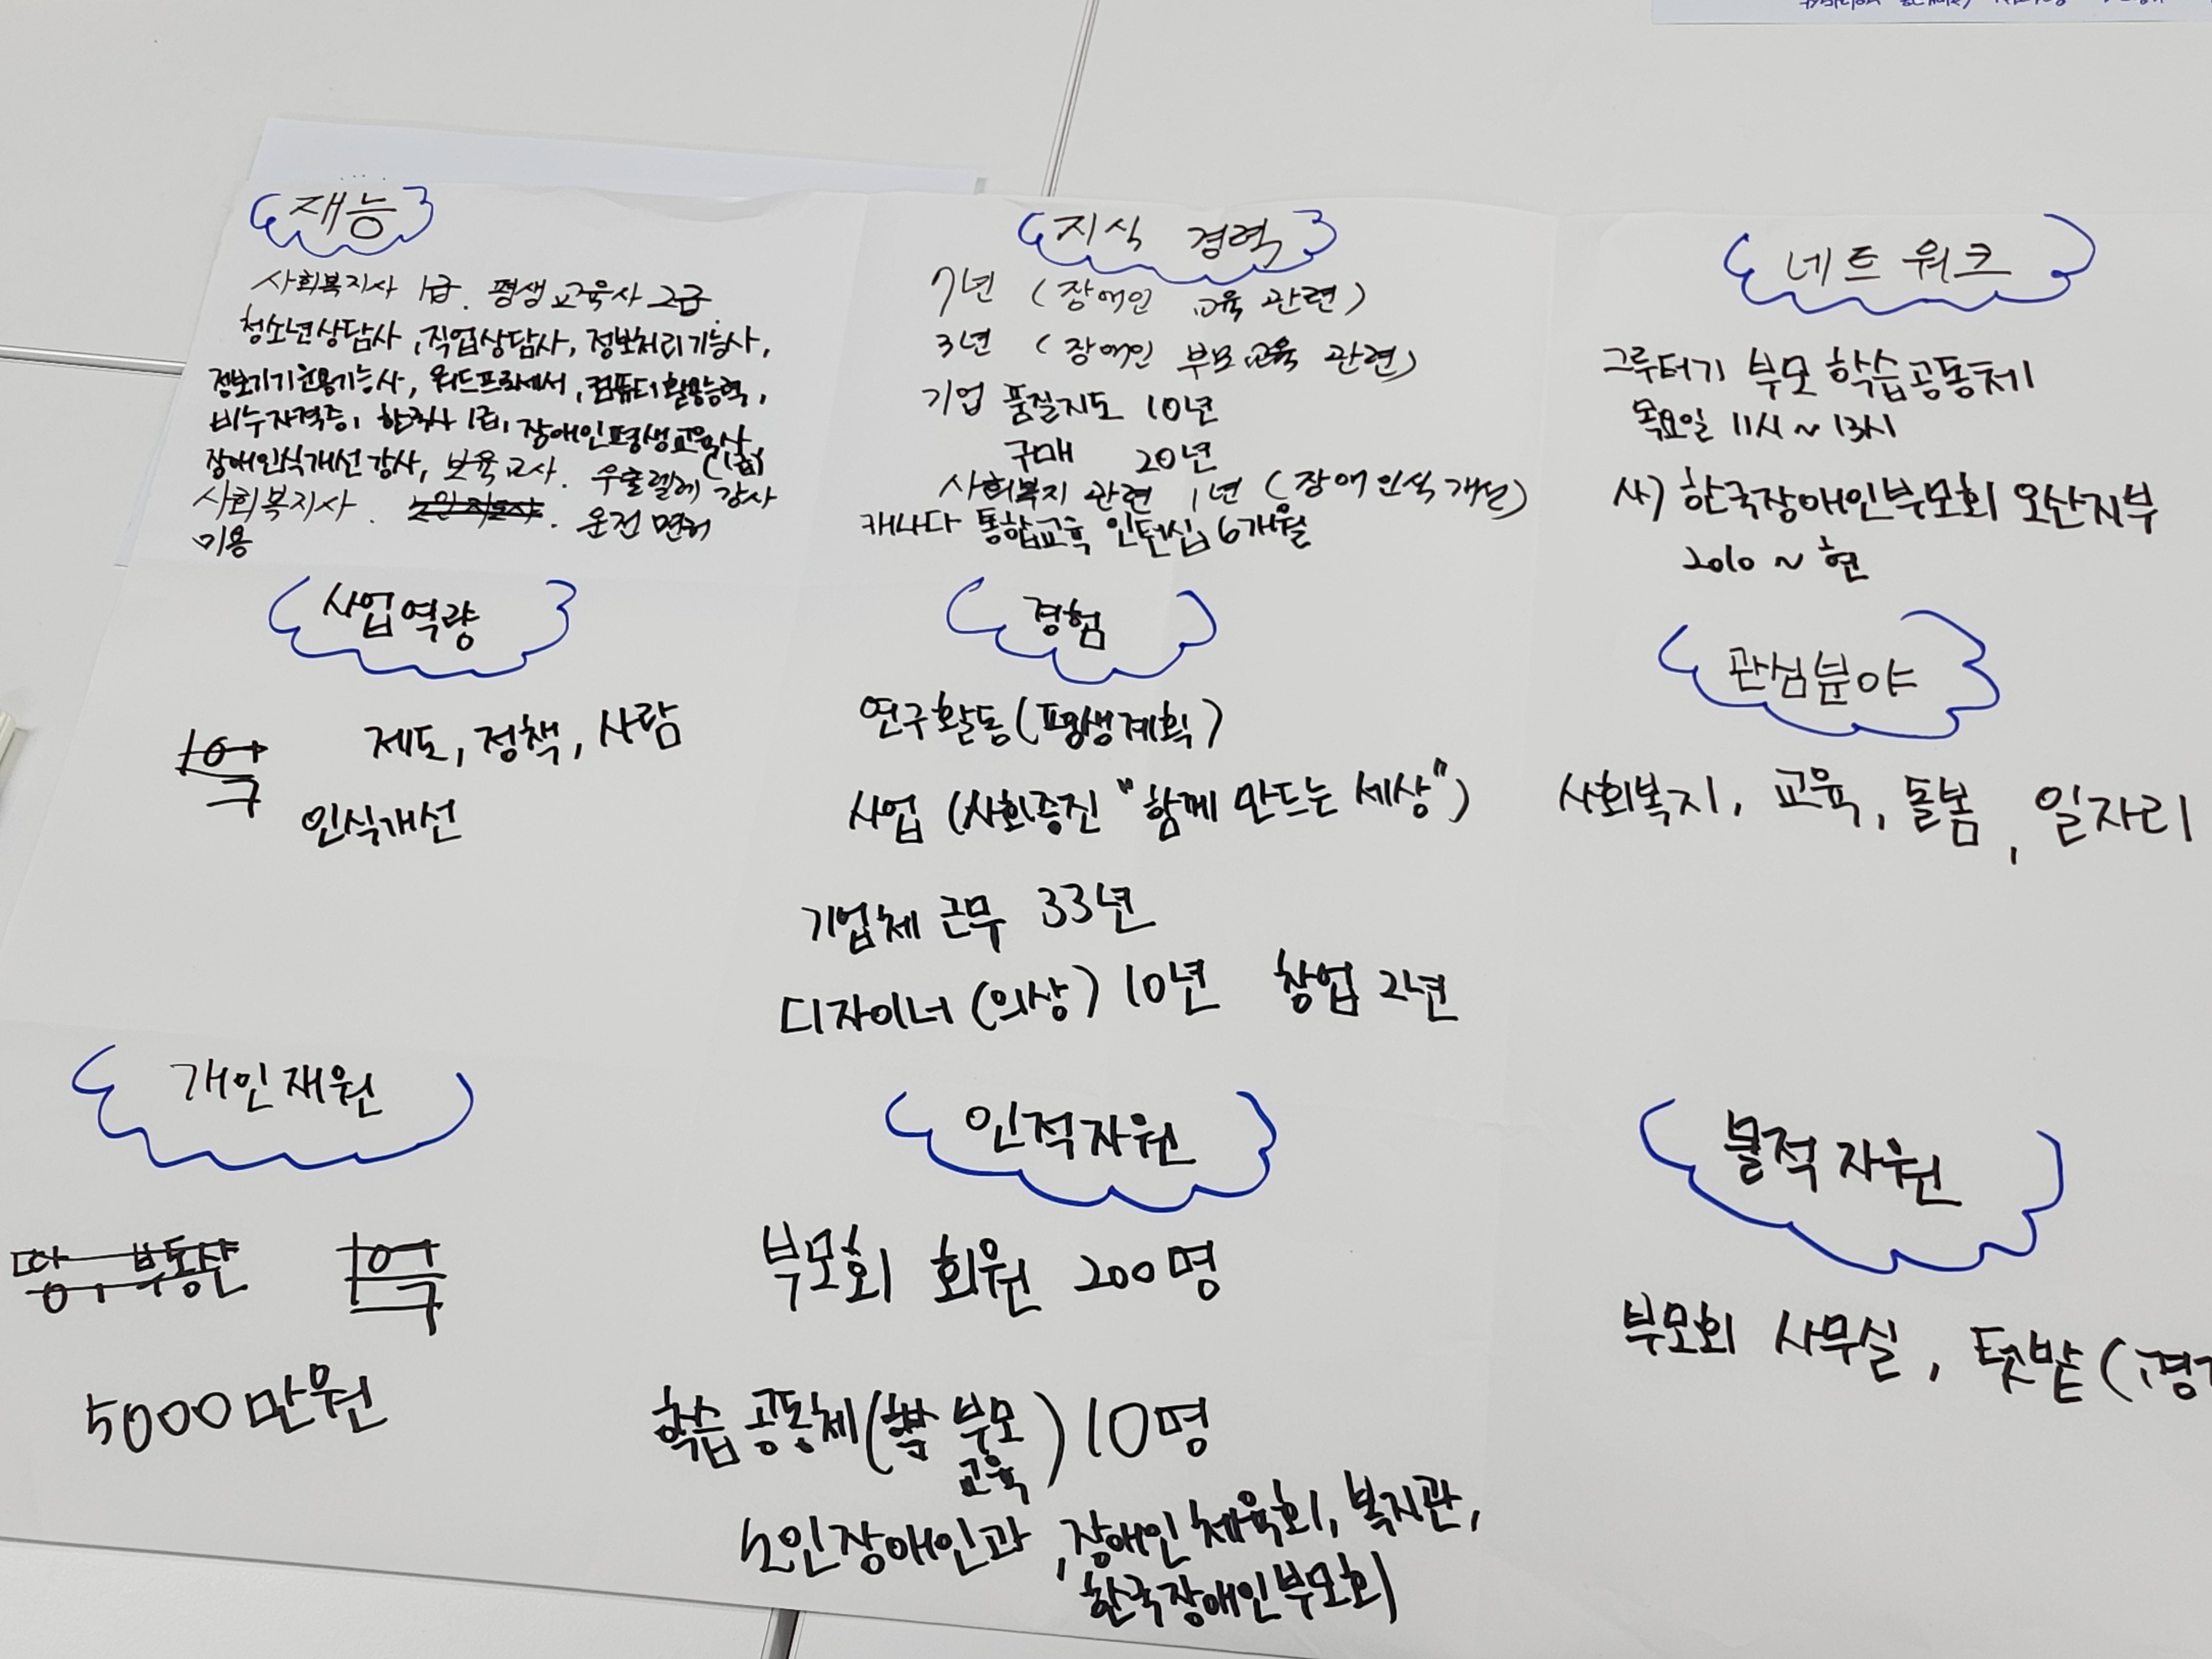 재능
사회복지사 1급. 평생교육사 2급.
청소년상담사, 직업상담사, 정보처리기능사,
정보기기운용기능사, 워드프로세서, 컴퓨터활용능력,
비누자격증, 한국사 1급, 장애인평생교육사,
(1급)
장애인식개선강사, 보육교사. 우쿨렐레 강사
사회복지사. 운전면허
미용
지식 경력
7년 (장애인 교육 관련)
3년 (장애인 부모교육 관련)
기업 품질지도 10년
구매 20년
사회복지 관련 1년 (장애인식개선)
캐나다 통합교육 인턴십 6개월
네트워크
그루터기 부모 학습공동체
목요일 11시 ~ 13시
사) 한국장애인부모회 오산지부
2010 ~ 현
사업역량
제도, 정책, 사람
인식개선
경험
연구활동 (평생계획)
사업 (사회증진 "함께 만드는 세상")
기업체 근무 33년
디자이너 (의상) 10년 창업 2년
관심분야
사회복지, 교육, 돌봄, 일자리
개인재원
땅, 부동산 1억
5000만원
인적자원
부모회 회원 200명
학습공동체 (부모
교육) 10명
노인장애인과, 장애인체육회, 복지관,
한국장애인부모회
물적자원
부모회 사무실, 텃밭 (경기